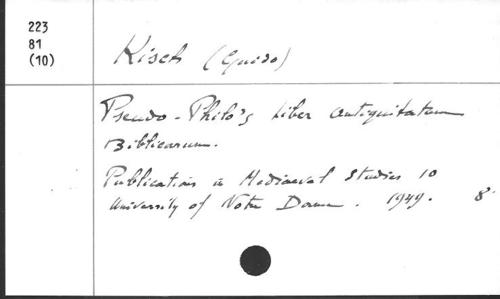 223
81
(10)
Kisch (Guido)
Pseudo-Philo's Liber Antiquitatum
Biblicarum.
Publications in Mediaeval Studies 10
University of Notre Dame. 1949. 8°